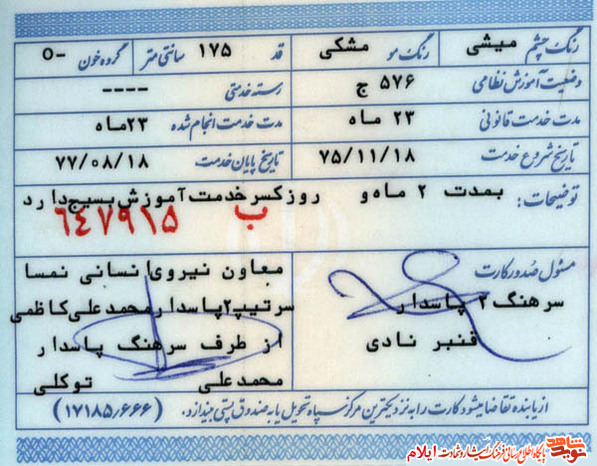 رنگ چشم میشی رنگ مو مشکی قد ۱۷۵ سانتی متر گروه خون O-
وضعیت آموزش نظامی ۵۷۶ ج رسته خدمتی ----
مدت خدمت قانونی ۲۳ ماه مدت خدمت انجام شده ۲۳ماه
تاریخ شروع خدمت ۷۵/۱۱/۱۸ تاریخ پایان خدمت ۷۷/۰۸/۱۸
توضیحات: بمدت ۲ ماه و روز کسر خدمت آموزش بسیج دارد
ب ۶۴۷۹۱۵
مسئول صدور کارت
سرهنگ ۲ پاسدار
قنبر نادی
معاون نیروی انسانی نمسا
سرتیپ ۲ پاسدار محمد علی کاظمی
از طرف سرهنگ پاسدار
محمد علی توکلی
از یابنده تقاضا میشود کارت را به نزدیکترین مرکز سپاه تحویل یا به صندوق پستی بیندازد. (۱۷۱۸۵/۶۶۶)
نوید شاهد پایگاه اطلاع رسانی فرهنگ ایثار و شهادت ایلام